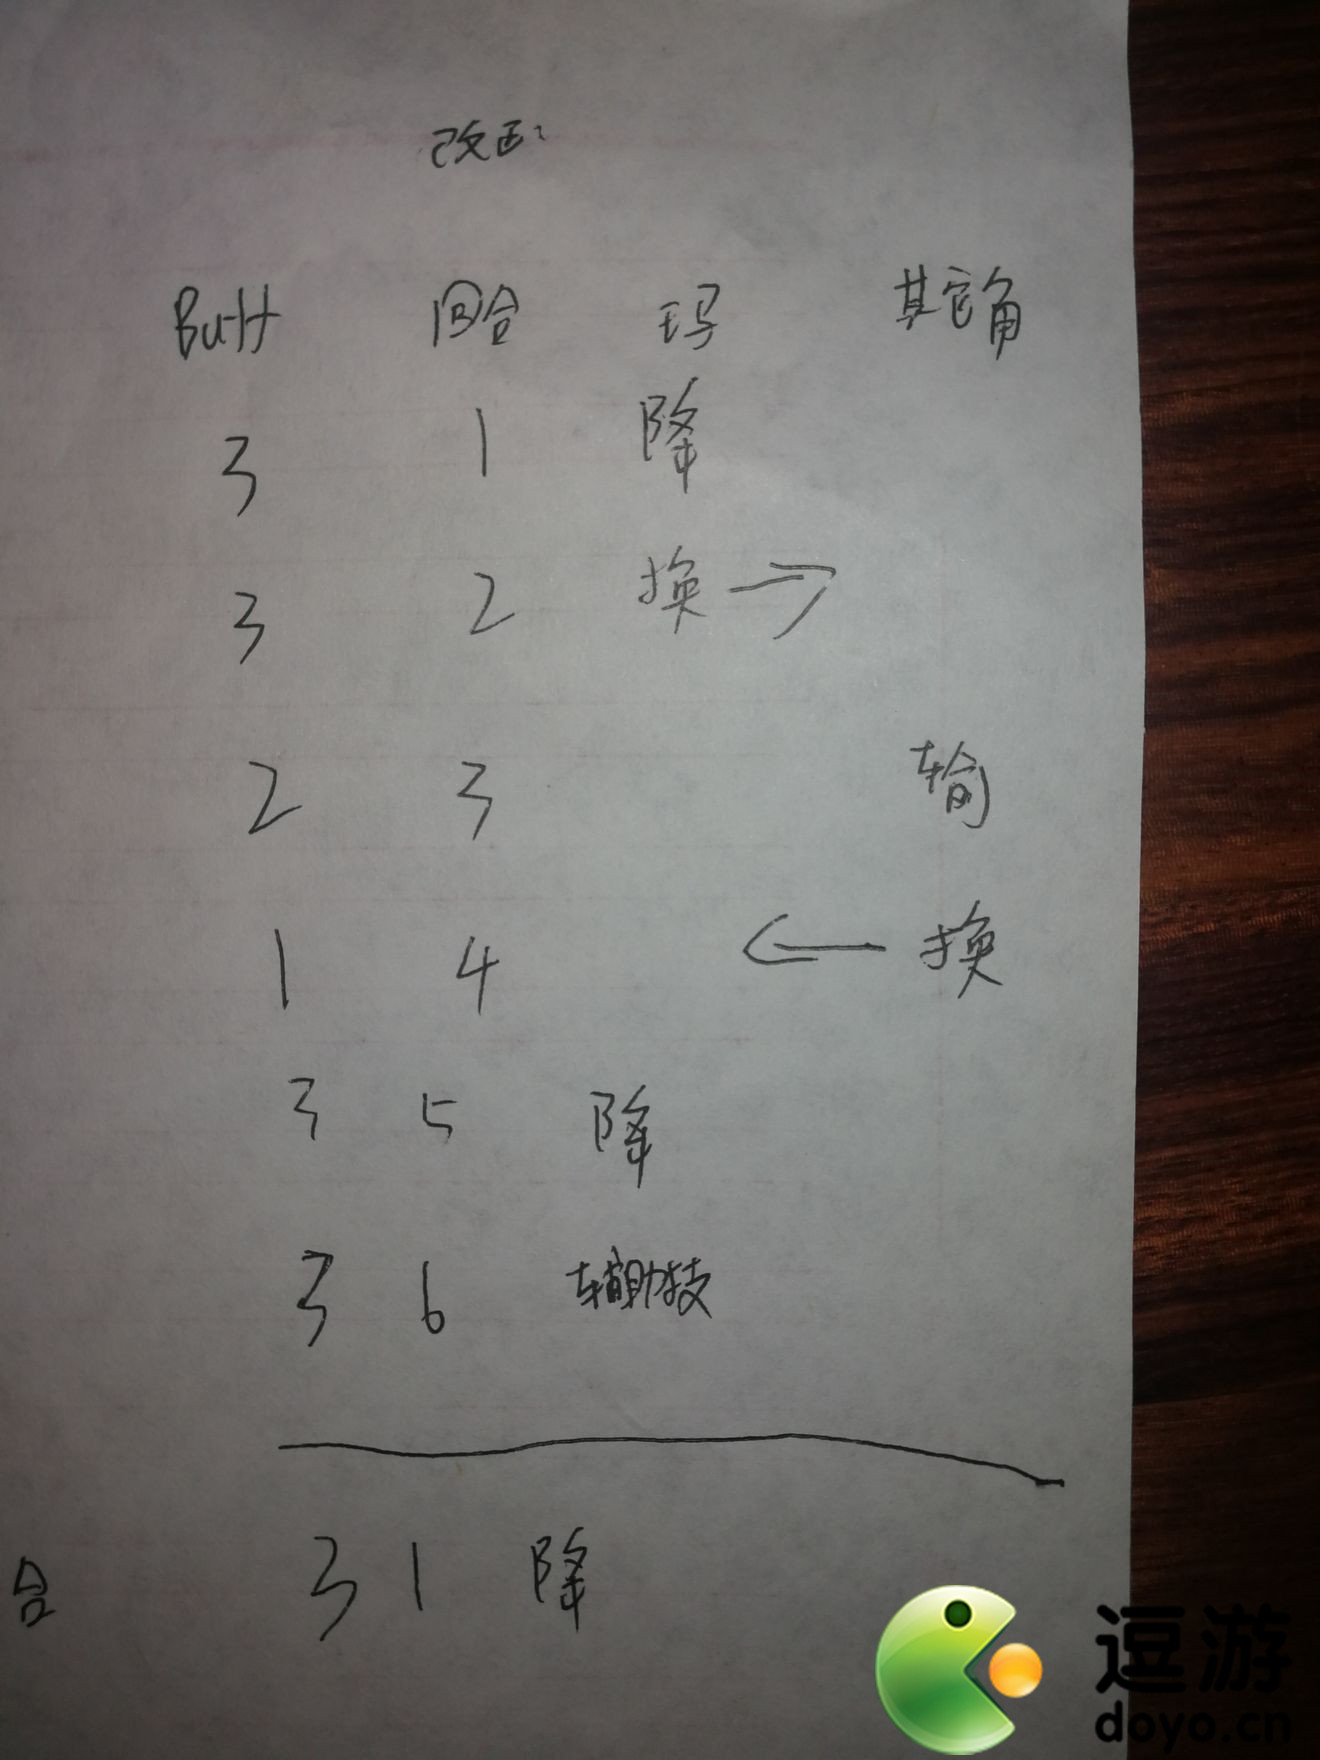 改正:
Buff 回合 玛 其它角
3 1 降
3 2 换→
2 3 输
1 4 ←换
3 5 降
3 6 辅助技
合 3 1 降
逗游
doyo.cn